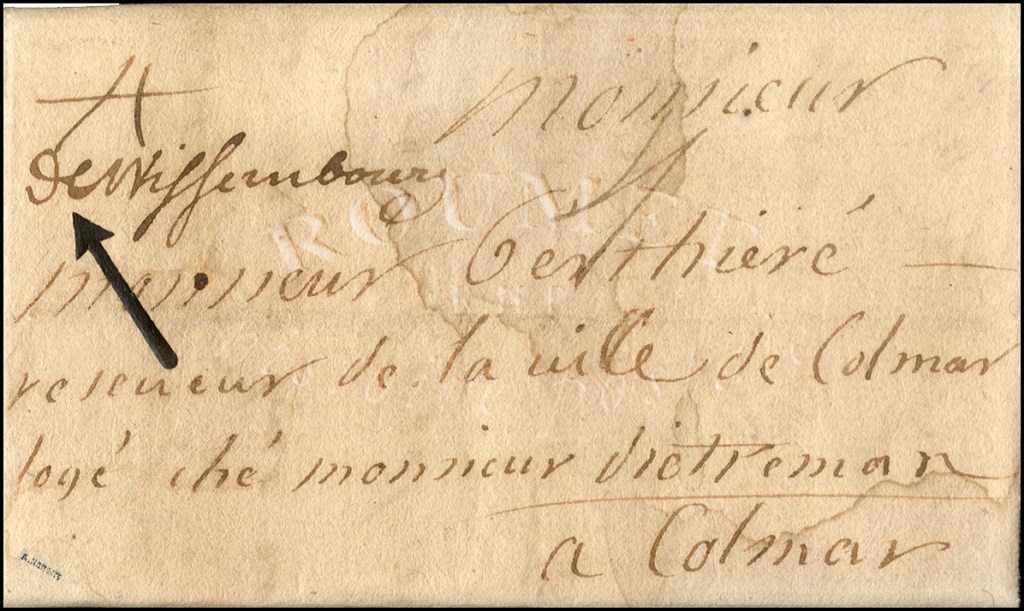 4
de Wissembourg
Monsieur
monsieur Berthieré
reseueur de la uille de Colmar
logé ché monsieur dietreman
a Colmar
ROUMET